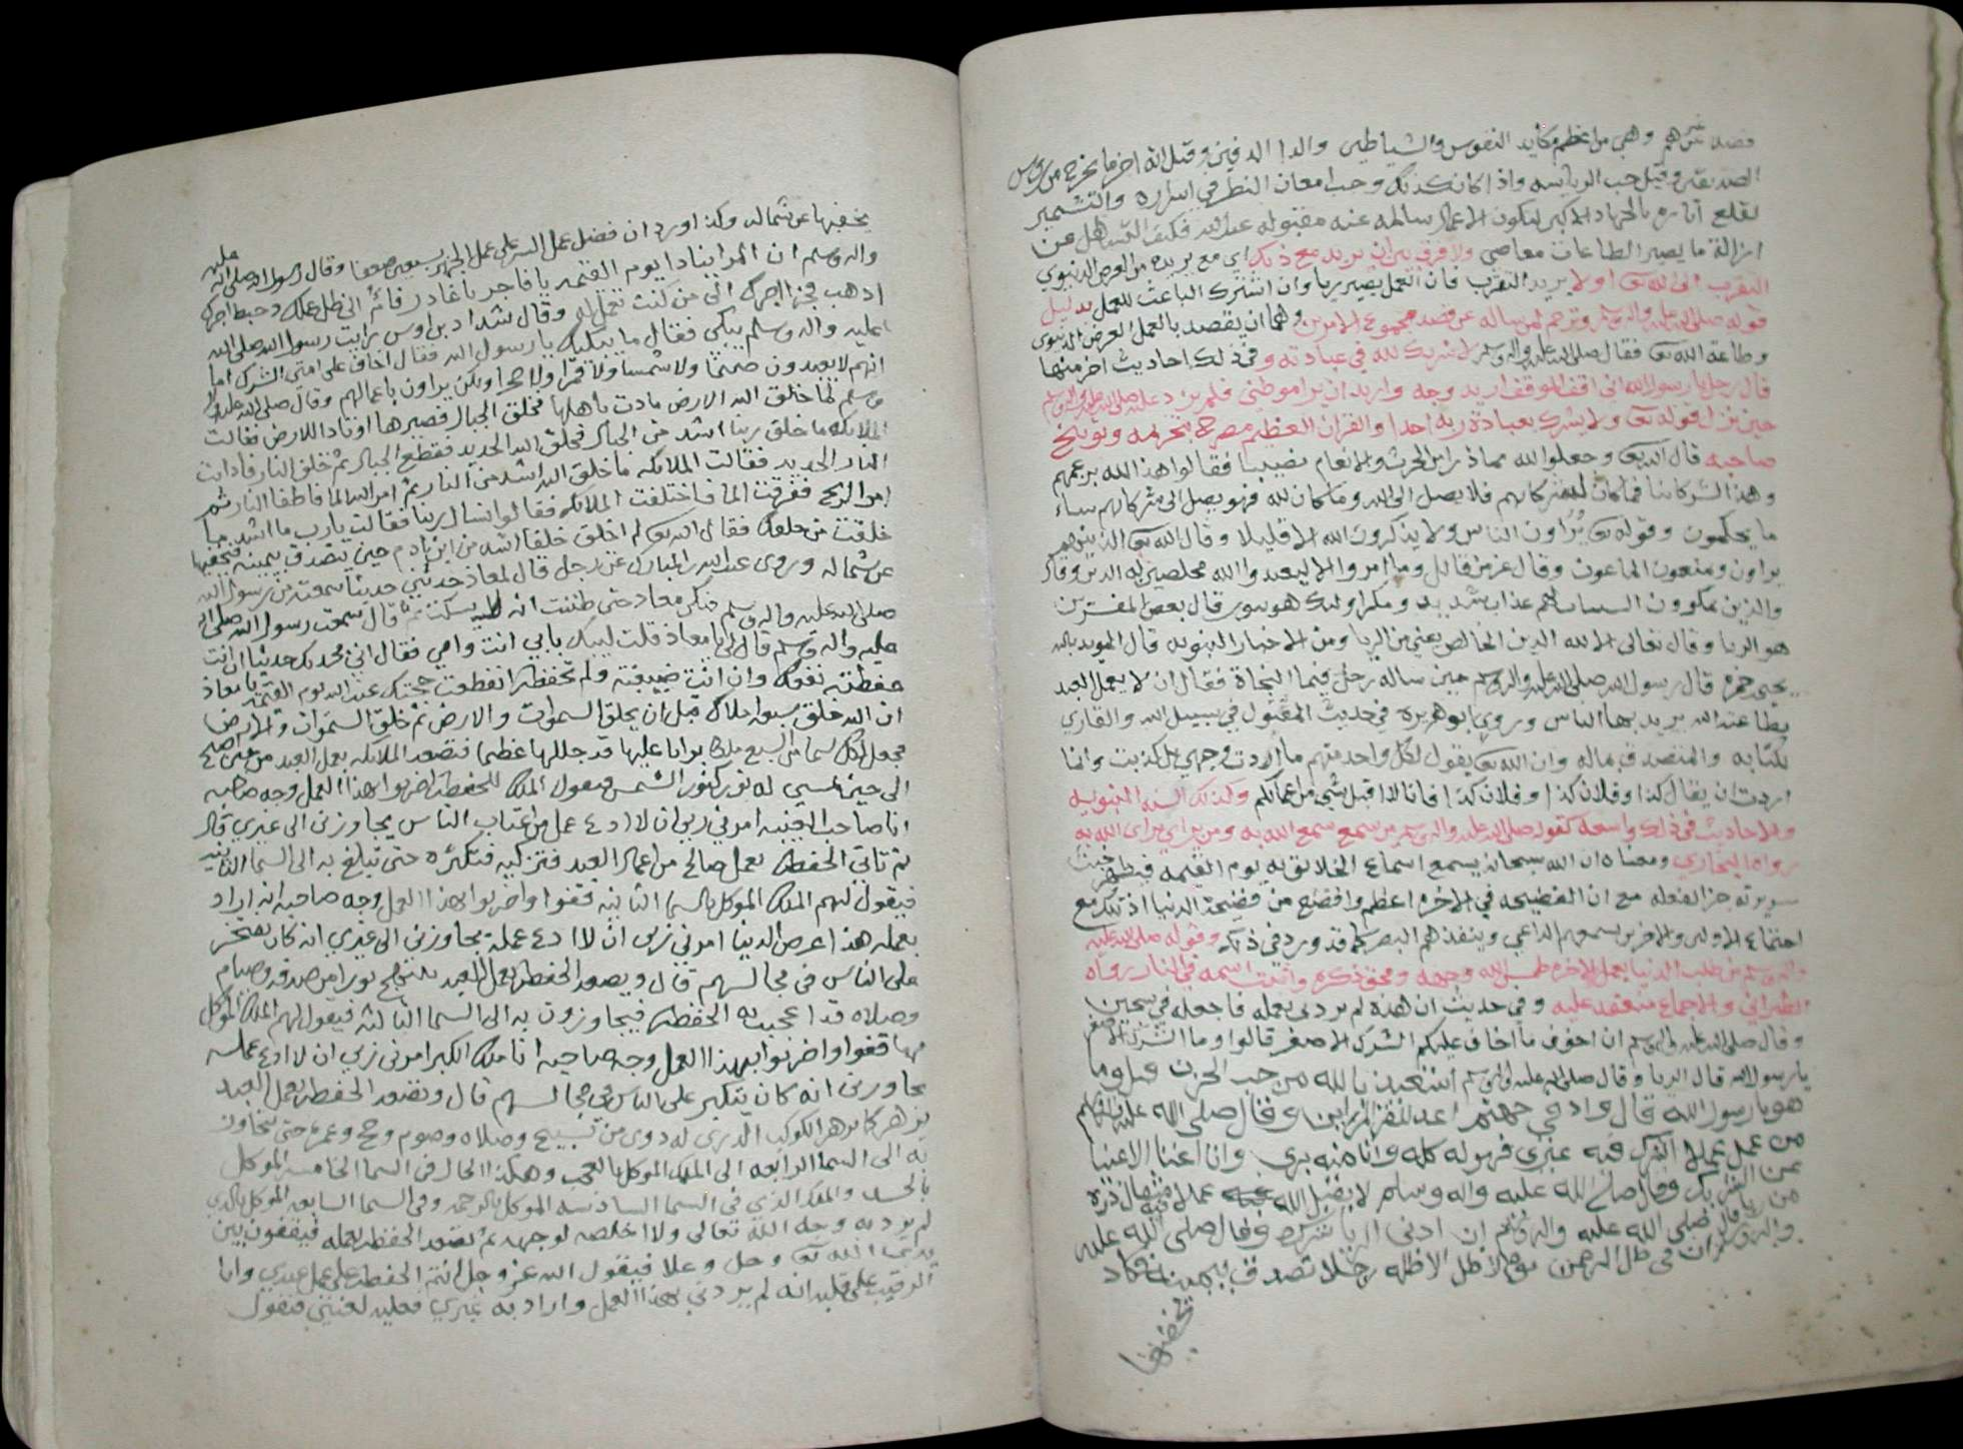 فضلا عن غيرهم وهي من اعظم مكايد النفوس والشياطين والدا الدفين وقيل انه اخر ما يخرج من روس
الصديقين وقيل حب الرياسه واذا كان كذلك وجب امعان النظر في اسراره والتشمير
لقلع اثاره بالجهاد الاكبر لتكون الاعمال سالمه عنه مقبوله عند الله فكيف التساهل عن
ازالة ما يصير الطاعات معاصي ولا فرق بين ان يريد مع ذلك اي مع يريده من الغرض الدنيوي
التقرب الى الله تعالى او لا يريد التقرب فان العمل يصير ريا وان اشترك الباعث للعمل بدليل
قوله صلى الله عليه واله وسلم وترحم لمن ساله عن قصد مجموع الامرين وهما ان يقصد بالعمل الغرض الدنيوي
وطاعة الله تعالى فقال صلى الله عليه واله وسلم لا شريك لله في عبادته وفي ذلك احاديث اخر منها
قال رجل يا رسول الله اني اقف الموقف اريد وجه واريد ان يرا موطني فلم يرد عليه صلى الله عليه واله وسلم
حين نزل قوله تعالى ولا يشرك بعبادة ربه احدا والقران العظيم مصرح بتحريمه وتوبيخ
صاحبه قال الله تعالى وجعلوا لله مما ذرا من الحرث والانعام نصيبا فقالوا هذا لله بزعمهم
وهذا لشركاينا فما كان لشركايهم فلا يصل الى الله وما كان لله فهو يصل الى شركايهم ساء
ما يحكمون وقوله تعالى يراون الناس ولا يذكرون الله الا قليلا وقال الله تعالى الذين هم
يراون ويمنعون الماعون وقال عز من قائل وما امروا الا ليعبدوا الله مخلصين له الدين وقال
والذين يمكرون السيات لهم عذاب شديد ومكر اوليك هو يبور قال بعض المفسرين
هو الريا وقال تعالى الا لله الدين الخالص يعني من الريا ومن الاخبار النبويه قال المويد بالله
يحيى حمزه قال رسول الله صلى الله عليه واله وسلم حين ساله رجل فيما النجاة فقال ان لا يعمل العبد
بطاعة الله يريد بها الناس وروى ابو هريره في حديث المقتول في سبيل الله والقاري
لكتابه والمتصدق بماله وان الله تعالى يقول لكل واحد منهم ما اردت وجهي بل كذبت وانما
اردت ان يقال كذا وفلان كذا وفلان كذا فانا لا اقبل شي من اعمالكم وكذلك السنه النبويه
والاحاديث في ذلك واسعه كقوله صلى الله عليه واله وسلم من سمع سمع الله به ومن يراي يراي الله به
رواه البخاري ومعناه ان الله سبحانه يسمع اسماع الخلايق به يوم القيمه فيظهر خبث
سريرته جزا لفعله مع ان الفضيحه في الاخره اعظم وافضح من فضيحة الدنيا اذ تلك مع
اجتماع الاولين والاخرين يسمعهم الداعي وينفذهم البصر كما قد ورد في ذلك وقوله صلى الله عليه
واله وسلم من طلب الدنيا بعمل الاخره طمس الله وجهه ومحق ذكره واثبت اسمه في النار رواه
الطبراني والاجماع منعقد عليه وفي حديث ان هذه لم يردني بعمله فاجعله في سجين
وقال صلى الله عليه واله وسلم ان اخوف ما اخاف عليكم الشرك الاصغر قالوا وما الشرك الاصغر
يا رسول الله قال الريا وقال صلى الله عليه واله وسلم استعيذ بالله من جب الحزن قيل وما
هو يا رسول الله قال واد في جهنم اعد للقرا المراين وقال صلى الله عليه واله وسلم
من عمل عملا اشرك فيه غيري فهو له كله وانا منه بري وانا اغنا الاغنيا
عن الشرك وقال صلى الله عليه واله وسلم لا يقبل الله عملا فيه مثقال ذره
من ريا وقال صلى الله عليه واله وسلم ان ادنى الريا شرك وقال صلى الله عليه
واله وسلم ان في ظل الرحمن يوم لا ظل الا ظله رجلا تصدق بيمينه فكاد
يخفيها
يخفيها عن شماله وكذا ورد ان فضل عمل السر على عمل الجهر بسبعين ضعفا وقال رسول الله صلى الله عليه
واله وسلم ان المرا ينادا يوم القيمه يا فاجر يا غادر يا مرائي ضل عملك وحبط اجرك
اذهب فخذ اجرك الى من كنت تعمل له وقال شداد بن اوس رايت رسول الله صلى الله
عليه واله وسلم يبكي فقال ما يبكيك يا رسول الله فقال اخاف على امتي الشرك اما
انهم لا يعبدون صنما ولا شمسا ولا قمرا ولا حجرا ولكن يراون باعمالهم وقال صلى الله عليه واله
وسلم لما خلق الله الارض مادت باهلها فخلق الجبال فصيرها اوتادا للارض فقالت
الملايكه ما خلق ربنا اشد من الجبال فخلق الله الحديد فقطع الجبال ثم خلق النار فاذابت
النار الحديد فقالت الملايكه ما خلق الله اشد من النار ثم امر الله الما فاطفا النار ثم
امر الريح ففرقت الما فاختلفت الملايكه فقالوا نسال ربنا فقالت يا رب ما اشد ما
خلقت من خلقك فقال الله تعالى لم اخلق خلقا اشد من ابن ادم حين يتصدق بيمينه فيخفيها
عن شماله وروى عبد الله بن المبارك عن رجل قال لمعاذ حدثني حديثا سمعته من رسول الله
صلى الله عليه واله وسلم فبكى معاذ حتى ظننت انه لا يسكت ثم قال سمعت رسول الله صلى الله
عليه واله وسلم قال لي يا معاذ قلت لبيك بابي انت وامي فقال اني محدثك حديثا ان انت
حفظته نفعك وان انت ضيعته ولم تحفظه انقطعت حجتك عند الله يوم القيمه يا معاذ
ان الله خلق سبعه املاك قبل ان يخلق السموات والارض ثم خلق السموات والارض
فجعل لكل سما من السبع ملكا بوابا عليها قد جللها عظما فتصعد الملايكه بعمل العبد من حين اصبح
الى حين امسى له نور كنور الشمس فيقول الملك للحفظه اضربوا بهذا العمل وجه صاحبه
انا صاحب الغيبه امرني ربي ان لا ادع عمل من اغتاب الناس يجاوزني الى غيري قال
ثم تاتي الحفظه بعمل صالح من اعمال العبد فتزكيه فتكثره حتى تبلغ به الى السما الثانيه
فيقول لهم الملك الموكل بالسما الثانيه قفوا واضربوا بهذا العمل وجه صاحبه انه اراد
بعمله هذا عرض الدنيا امرني ربي ان لا ادع عمله يجاوزني الى غيري انه كان يفتخر
على الناس في مجالسهم قال ويصعد الحفظه بعمل العبد يبتهج نورا من صدقه وصيام
وصلاه قد اعجب به الحفظه فيجاوزون به الى السما الثالثه فيقول لهم الملك الموكل
بها قفوا واضربوا بهذا العمل وجه صاحبه انا ملك الكبر امرني ربي ان لا ادع عمله
يجاوزني انه كان يتكبر على الناس في مجالسهم قال وتصعد الحفظه بعمل العبد
يزهر كما يزهر الكوكب الدري له دوي من تسبيح وصلاه وصوم وحج وعمره حتى يجاوز
به الى السما الرابعه الى الملك الموكل بالعجب وهكذا الحال في السما الخامسه الموكل
بالحسد والملك الذي في السما السادسه الموكل بالرحمه وفي السما السابعه الموكل بالذي
لم يرد به وجه الله تعالى ولا اخلصه لوجهه ثم تصعد الحفظه بعمله فيقفون بين
يدي الله تعالى وجل وعلا فيقول الله عز وجل انتم الحفظه على عمل عبدي وانا
الرقيب على قلبه انه لم يردني بهذا العمل واراد به غيري فعليه لعنتي فتقول